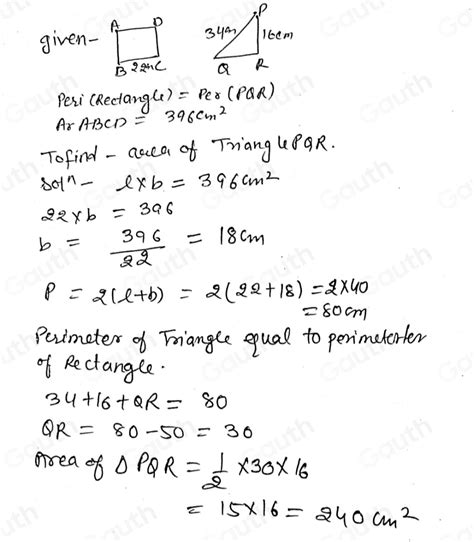 given-
A D
B 22cm C
P
34cm 16cm
Q R
Peri (Rectangle) = Per (PQR)
Ar ABCD = 396cm²
To find - area of Triangle PQR.
Solⁿ - l×b = 396cm²
22×b = 396
b = 396/22 = 18cm
P = 2(l+b) = 2(22+18) = 2×40
= 80cm
Perimeter of Triangle equal to
of Rectangle.
34+16+QR = 80
QR = 80-50 = 30
Area of Δ PQR = 1/2 ×30×16
= 15×16 = 240 cm²